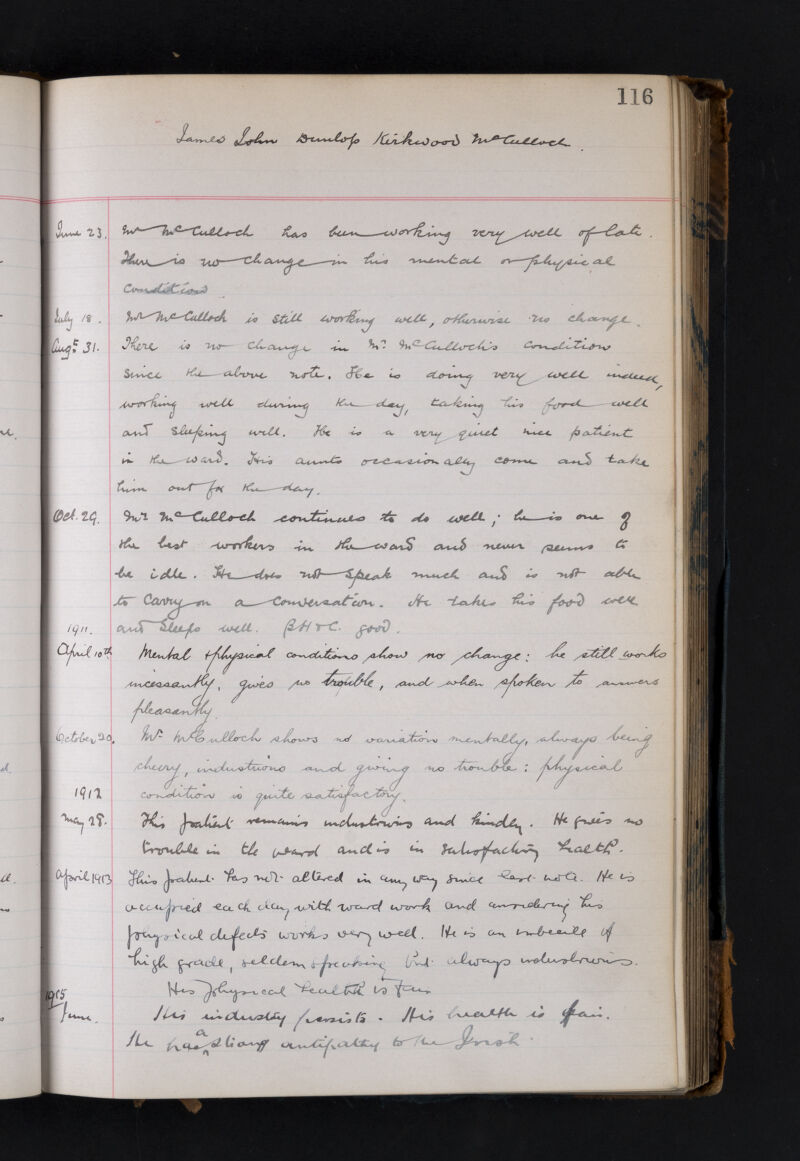 116
James John Dunlop Kirkwood McCulloch.
June 23. Mr McCulloch has been working very well of late.
There is no change in his mental or physical
condition.
July 18. Mr McCulloch is still working well, otherwise no change.
Augst 31. There is no change in Mr. McCulloch's condition
since the above note. He is doing very well indeed,
working well during the day, taking his food well
and sleeping well. He is a very quiet nice patient
in the ward. His aunts occasionally come and take
him out for the day.
Oct. 29. Mr McCulloch continues to do well; he is one of
the best workers in the ward and never seems to
be idle. He does not speak much and is not able
to carry on a conversation. He takes his food well
1911. and sleeps well. B.H & C. good.
April 10th Mental & physical conditions show no change: he still works
incessantly, gives no trouble, and when spoken to answers
pleasantly.
October 20. Mr. McCulloch shows no variation mentally, always being
cheery, industrious and giving no trouble: physical
1912 condition is quite satisfactory.
May 28. This patient remains industrious and kindly. He gives no
trouble in the ward and is in satisfactory health.
April 1913 This patient has not altered in any way since last note. He is
occupied each day with ward work and considering his
physical defects works very well. He is an imbecile of
high grade, seldom speaking but always industrious.
His physical health is fair
1915
June. His industry persists. His health is fair.
He has a strong antipathy to the Irish.